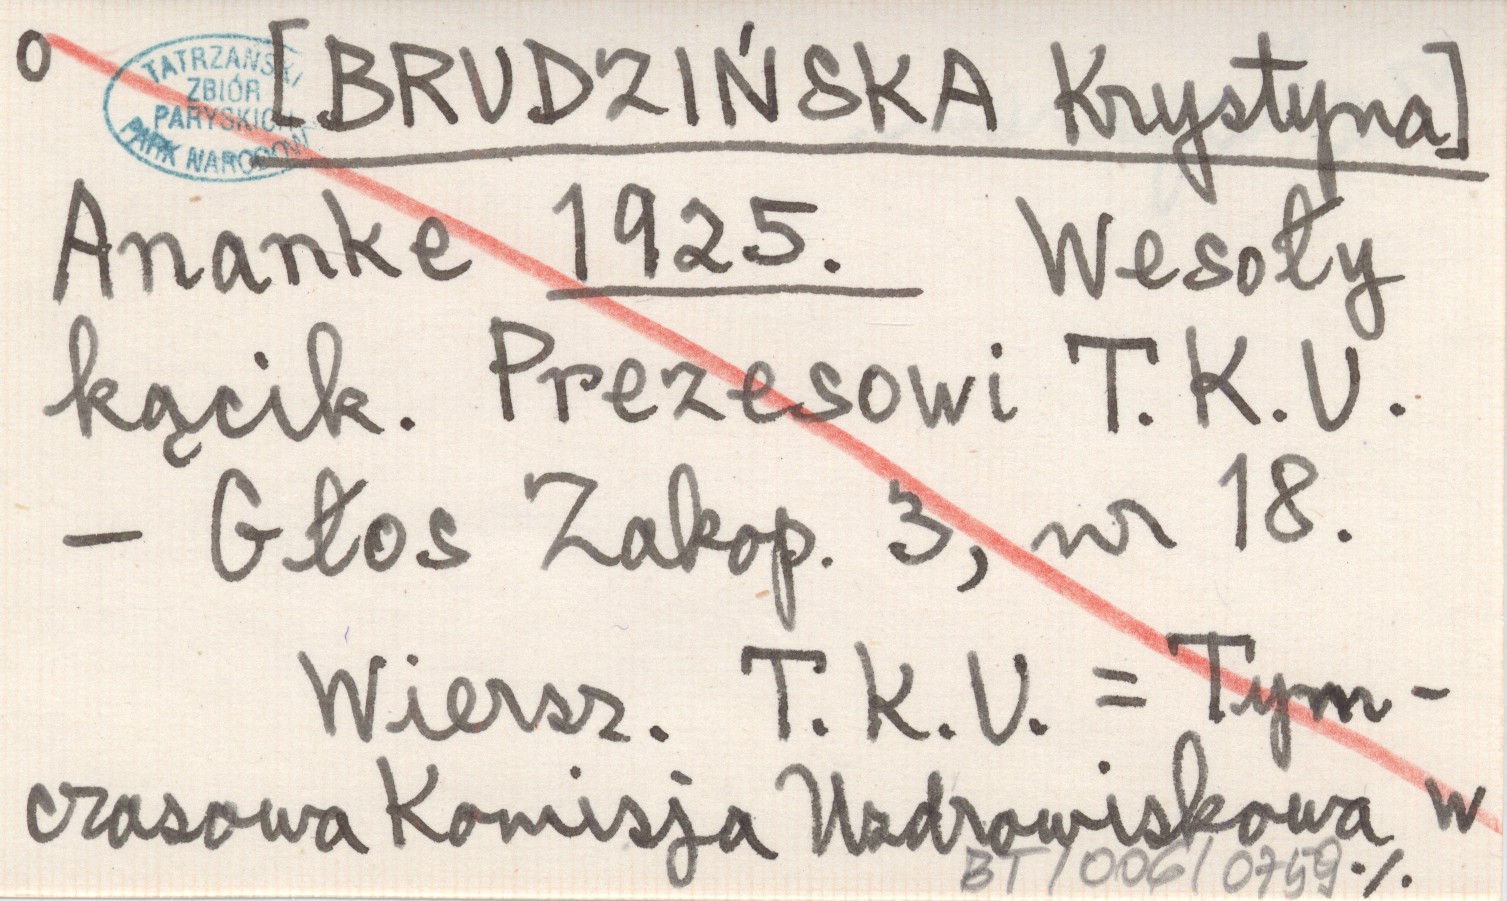 o [BRUDZIŃSKA Krystyna]
TATRZAŃSKI
ZBIÓR
PARYSKICH
PARK NARODOWY
Ananke 1925. Wesoły
kącik. Prezesowi T.K.U.
— Głos Zakop. 3, nr 18.
Wiersz. T.K.U. = Tym-
czasowa Komisja Uzdrowiskowa w
BT/006/0759 ./.